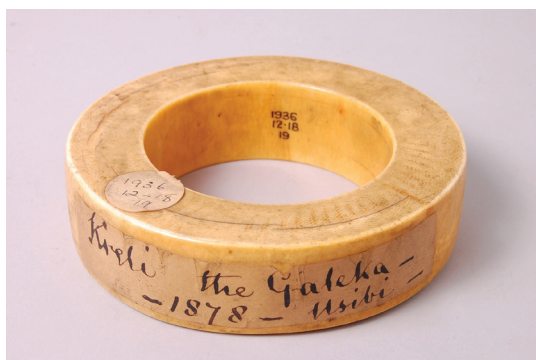 1936
12-18
19
1936
12-18
19
Kreli the Galeka -
- 1878 - Usibi -